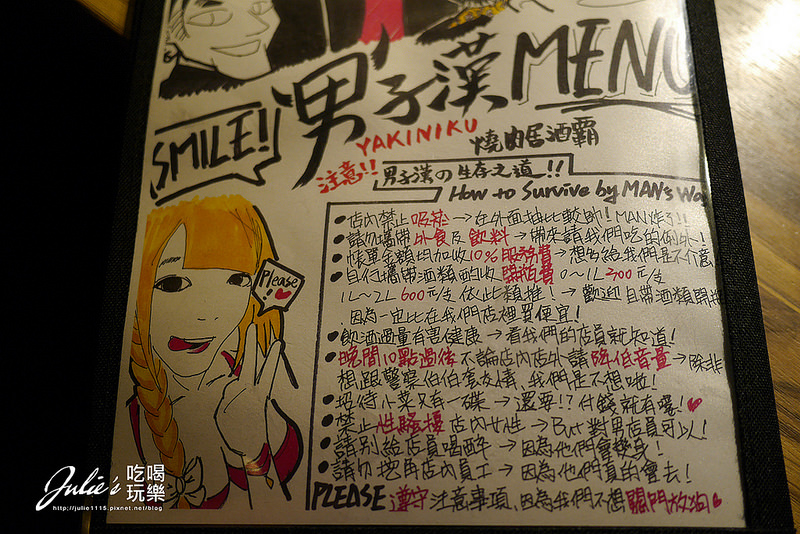 男子漢 MENU
SMILE!
YAKINIKU
燒肉居酒霸
注意!! 男子漢の生存之道!!
How to Survive by MAN's Wa
●店內禁止吸菸→在外面抽比較帥!MAN炸了!!
●請勿攜帶外食及飲料→帶來請我們吃的例外!
●帳單金額均加收10%服務費→想多給我們是不介意
●自行攜帶酒類酌收開瓶費0~1L 300元/支
1L~2L 600元/支依此類推!→歡迎自帶酒類開瓶
因為一定比在我們店裡買便宜!
●飲酒過量有害健康→看我們的店員就知道!
●晚間10點過後不論店內店外請降低音量→除非
想跟警察伯伯套交情、我們是不想啦!
●招待小菜只有一碟→還要!?付錢就有喔!
●禁止性騷擾店內女性→But 對男店員可以!
●請別給店員喝醉→因為他們會變身!
●請勿挖角店內員工→因為他們真的會去!
PLEASE 遵守注意事項、因為我們不想關門放狗
Please!
Julie's 吃喝玩樂
http://julie1115.pixnet.net/blog